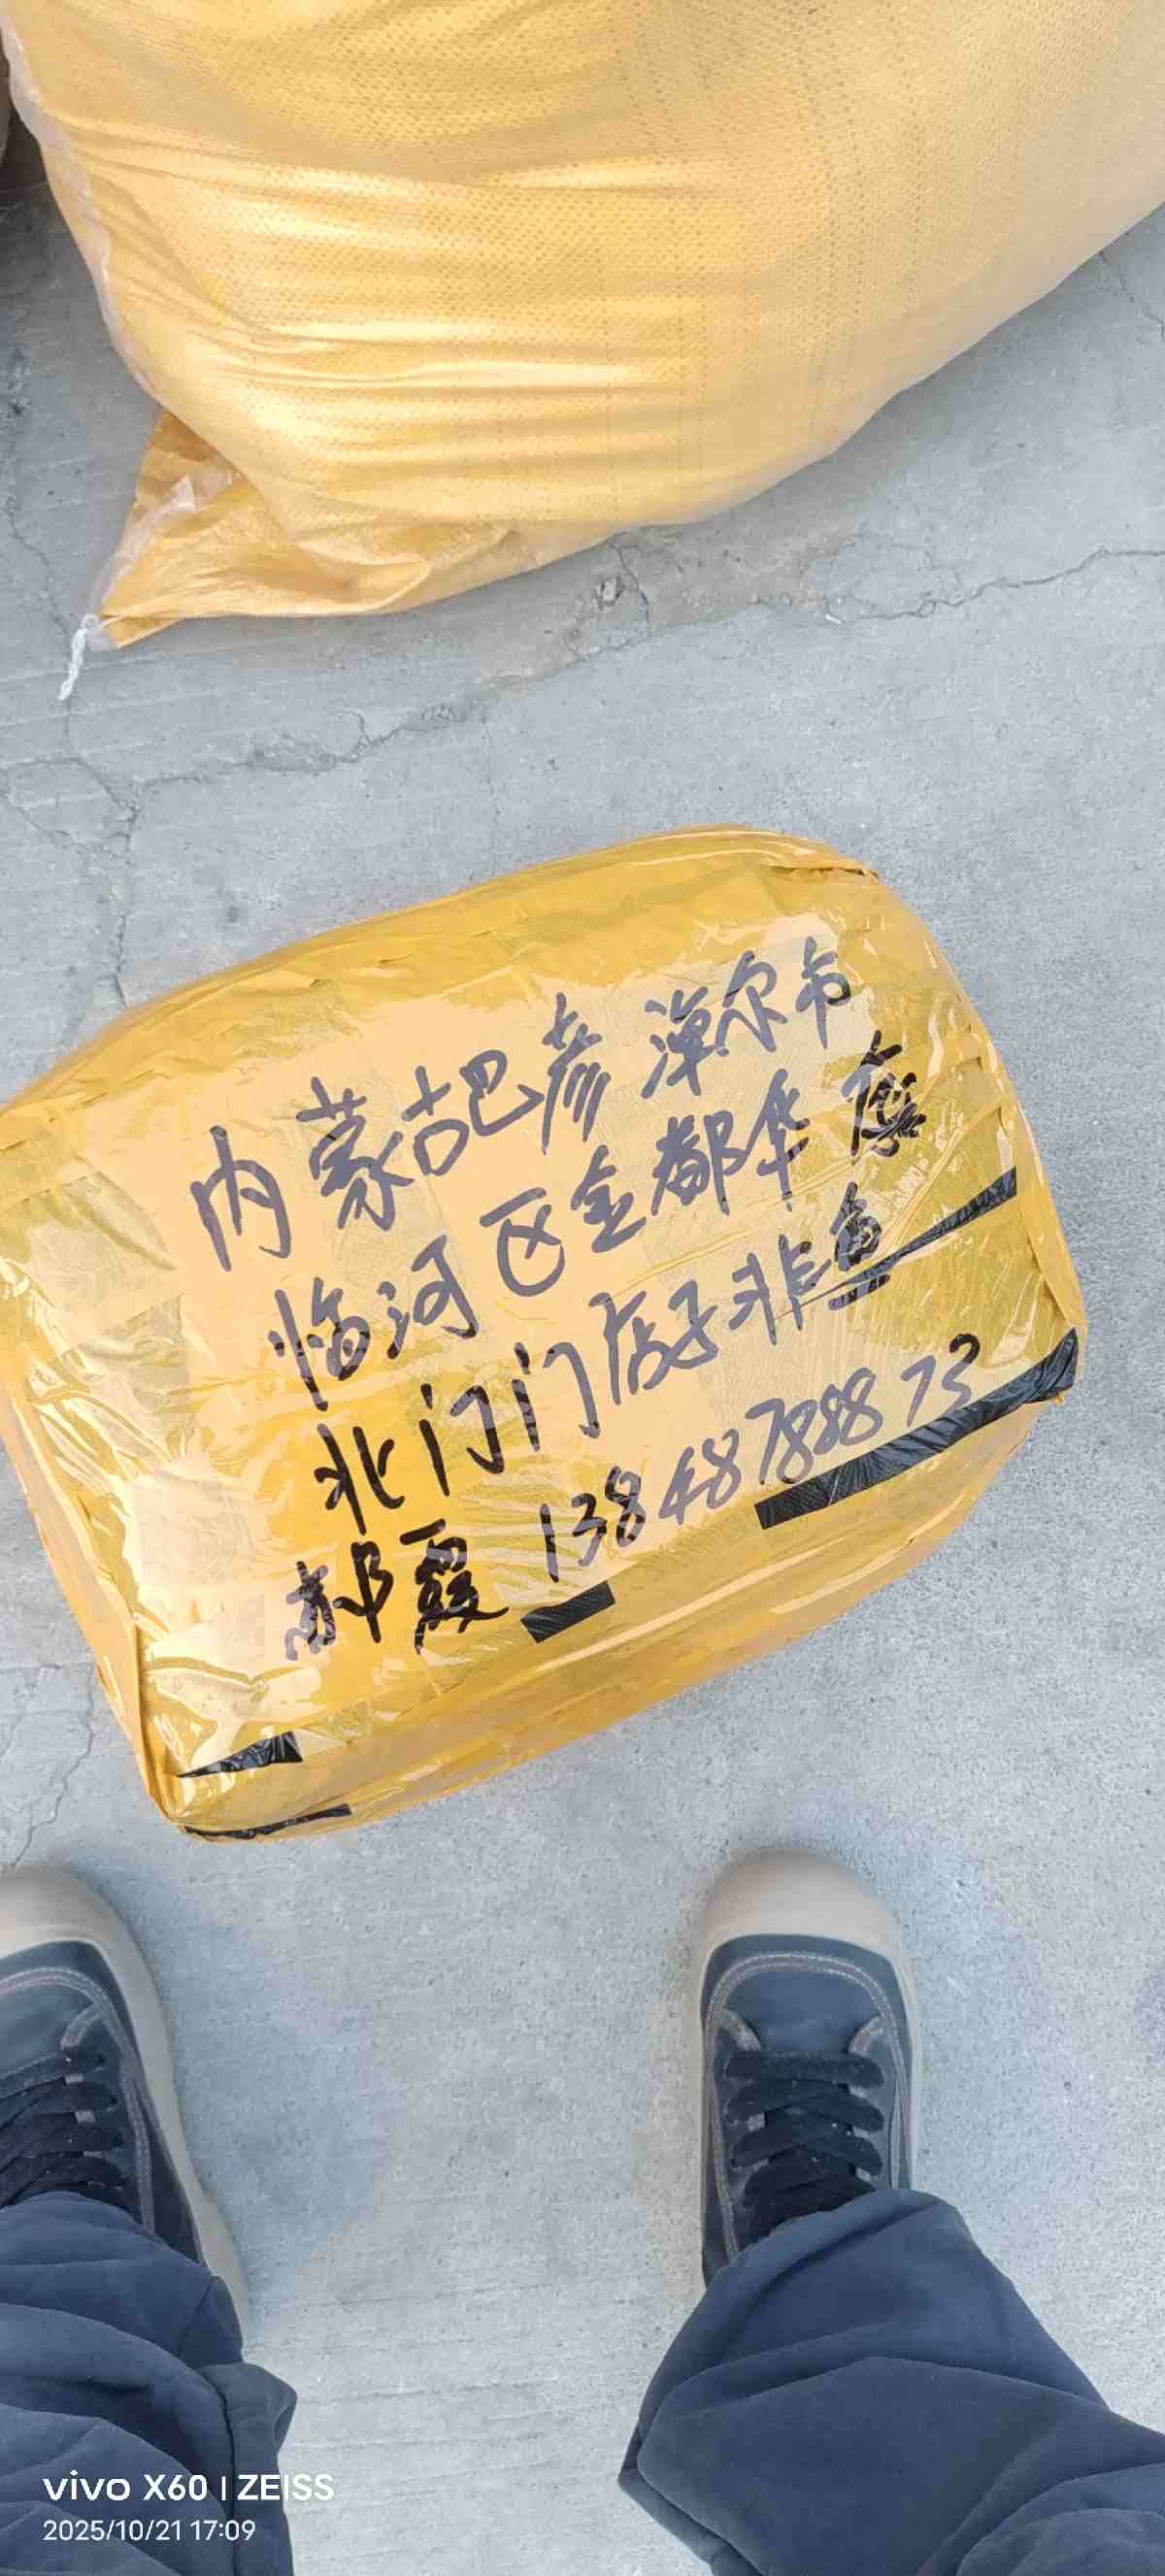 内蒙古巴彦淖尔市
临河区金都华庭
北门门店子非鱼
郝霞 13848788873
vivo X60 | ZEISS
2025/10/21 17:09